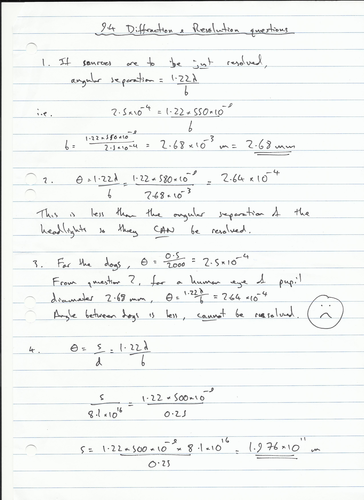 9.4 Diffraction & Resolution questions
1. If sources are to be just resolved,
angular separation = 1.22λ
b
i.e. 2.5×10⁻⁴ = 1.22 × 550×10⁻⁹
b
b = 1.22×550×10⁻⁹ = 2.68×10⁻³ m = 2.68 mm
2.5×10⁻⁴
2. θ = 1.22λ = 1.22×580×10⁻⁹ = 2.64×10⁻⁴
b 2.68×10⁻³
This is less than the angular separation of the
headlights so they CAN be resolved.
3. For the dogs, θ = 0.5 = 2.5×10⁻⁴
2000
From question 2, for a human eye of pupil
diameter 2.68 mm, θ = 1.22λ = 2.64×10⁻⁴
b
Angle between dogs is less, cannot be resolved.
4. θ = s = 1.22λ
d b
s = 1.22×500×10⁻⁹
8.1×10¹⁶ 0.25
s = 1.22×500×10⁻⁹ × 8.1×10¹⁶ = 1.976×10¹¹ m
0.25